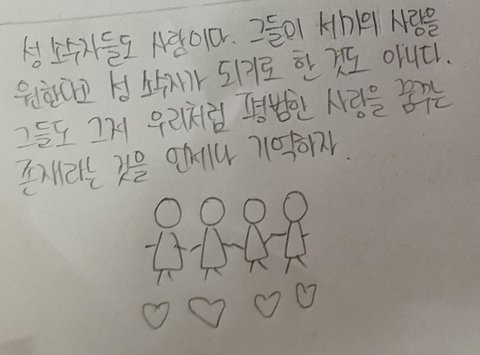 성 소수자들도 사람이다. 그들이 세기의 사랑을
원한다고 성 소수자가 되기로 한 것도 아니다.
그들도 그저 우리처럼 평범한 사랑을 꿈꾸는
존재라는 것을 언제나 기억하자.